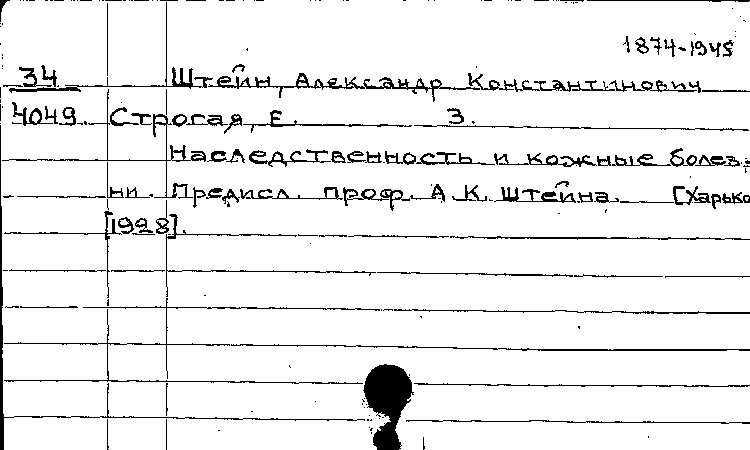 1874-1945
34 Штейн, Александр Константинович
4049. Строгая, Е. З.
Наследственность и кожные болез-
ни. Предисл. проф. А.К. Штейна. [Харько
[1928].